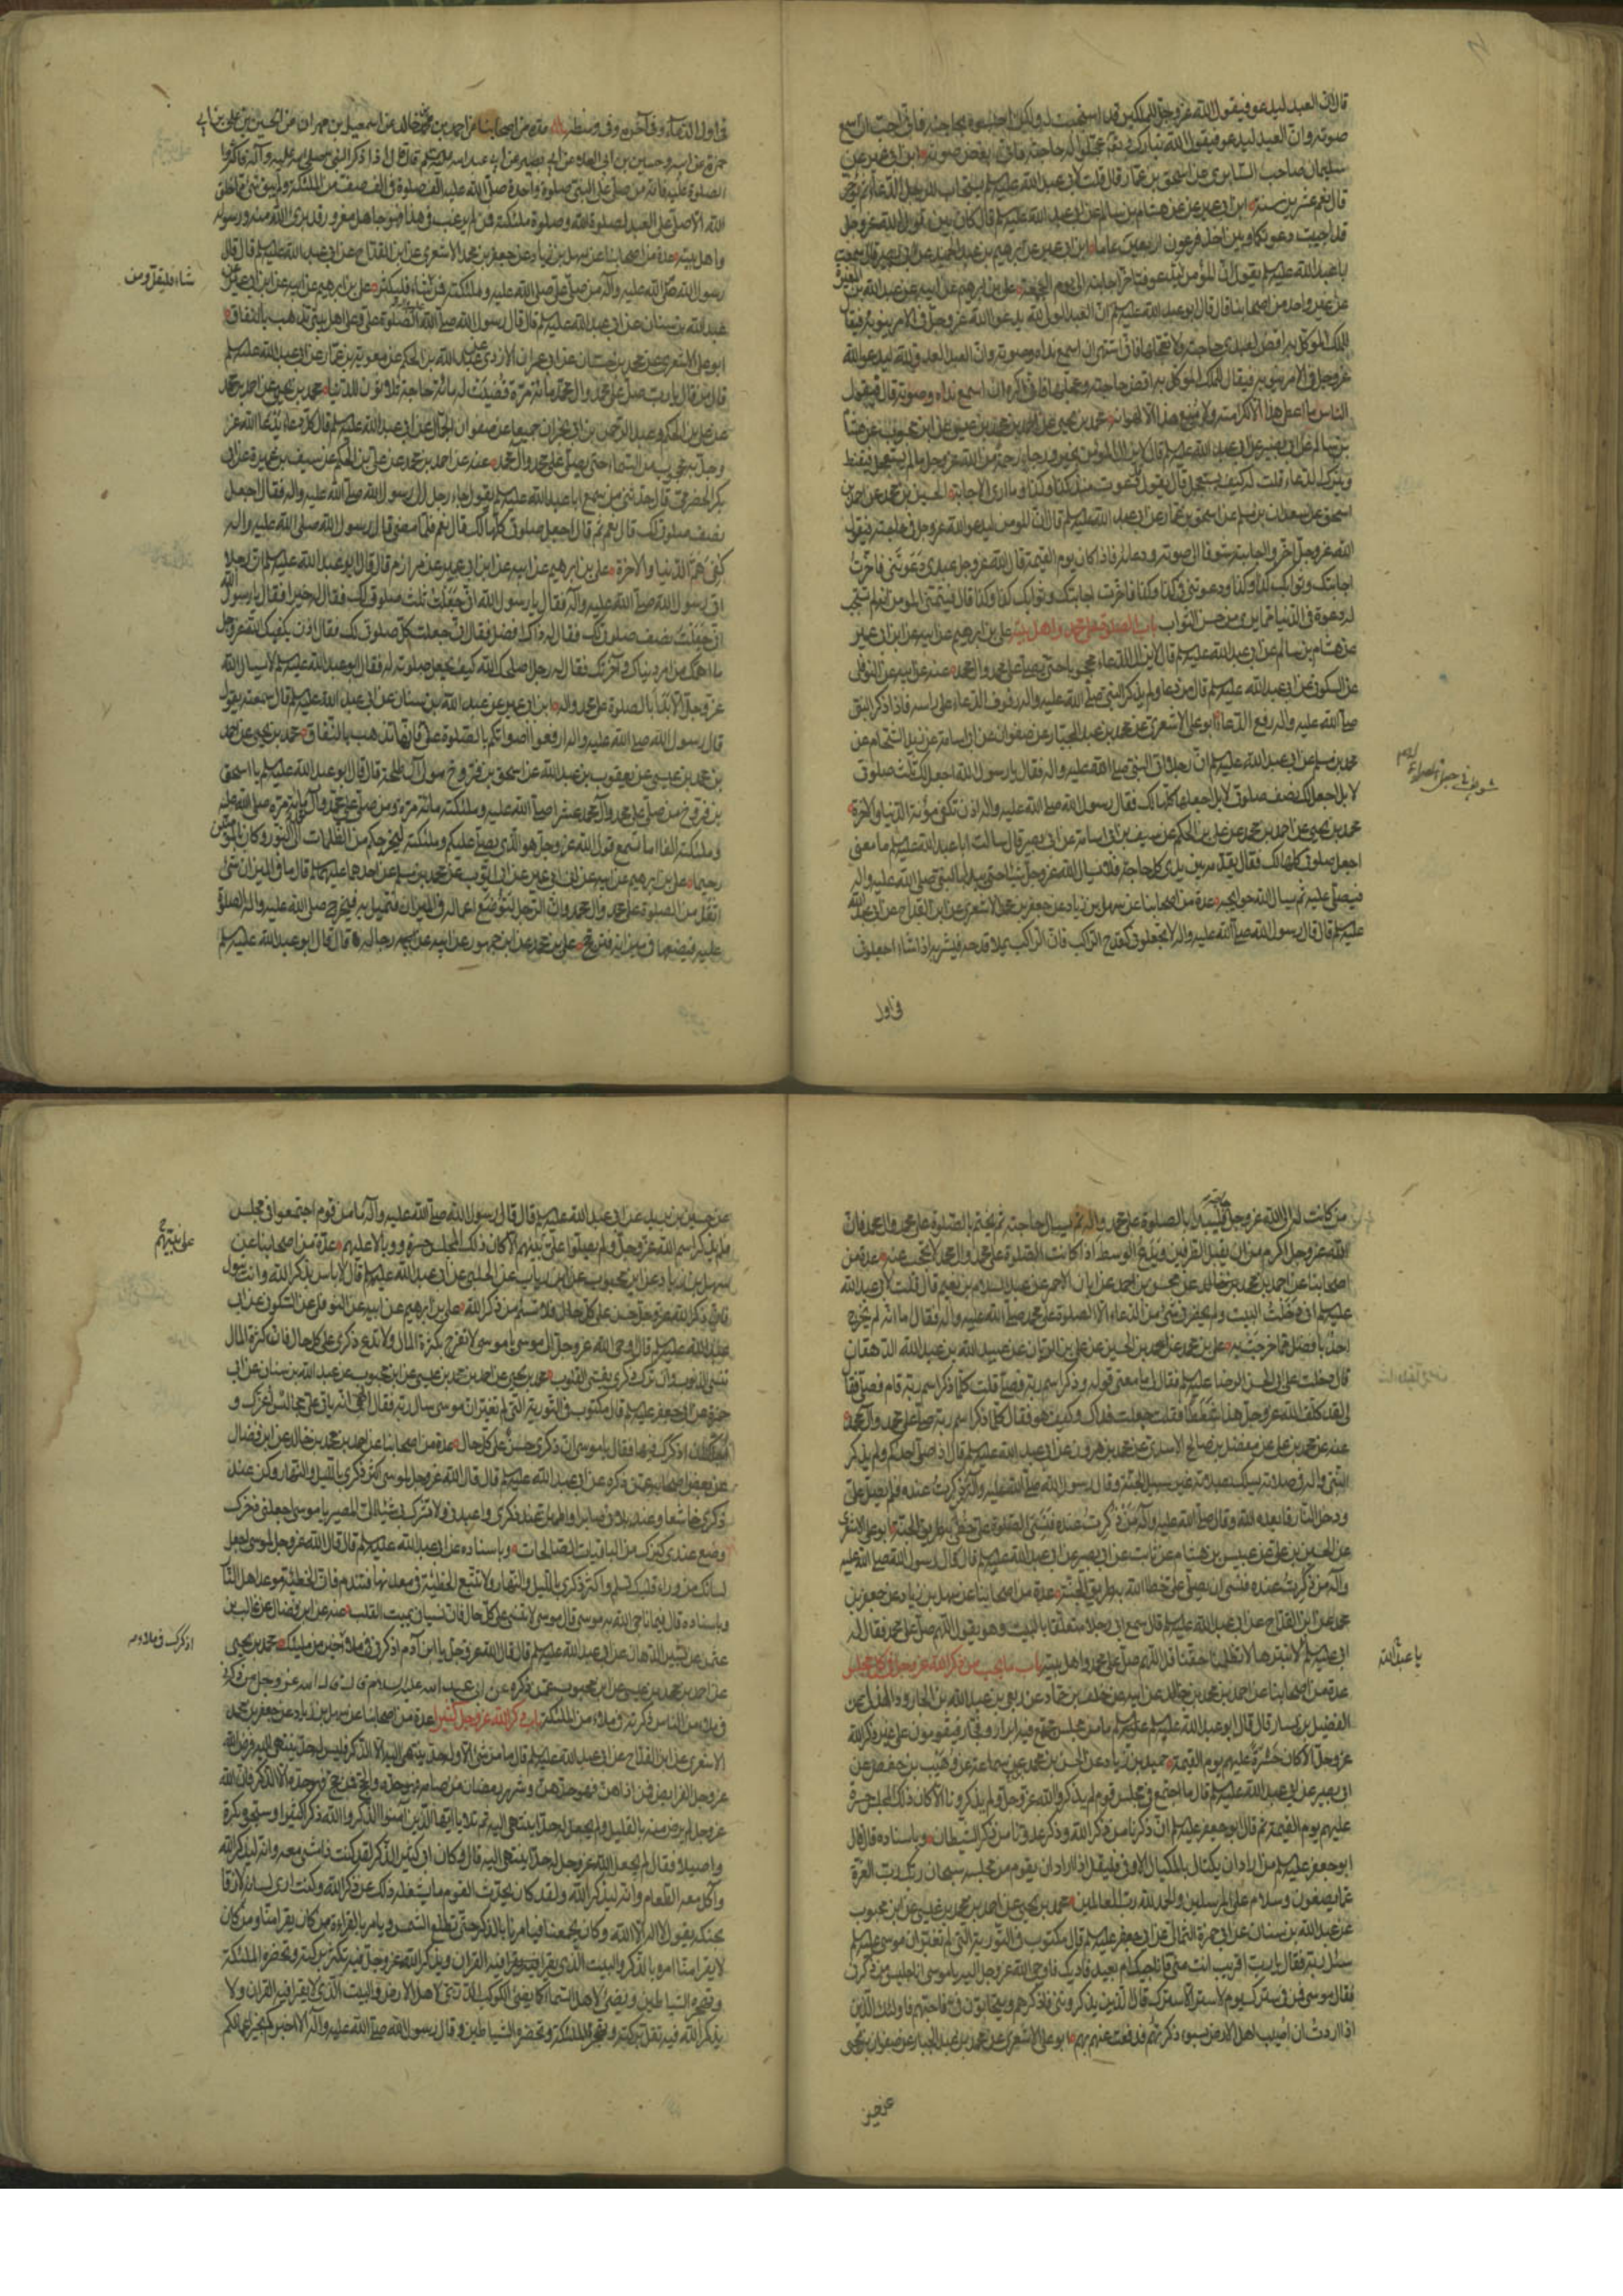 قال ان العبد ليدعو فيقول الله عز وجل للملكين قد استجبت له ولكن احبسوه بحاجته فانى احب ان اسمع
صوته وان العبد ليدعو فيقول الله تبارك وتعالى عجلوا له حاجته فانى ابغض صوته ابن ابى عمير عن
سليمان صاحب السابرى عن اسحق بن عمار قال قلت لابى عبد الله عليه السلم يستجاب للرجل الدعاء ثم يؤخر
قال نعم عشرين سنة ابن ابى عمير عن هشام بن سالم عن ابى عبد الله عليه السلم قال كان بين قول الله عز وجل
قد اجيبت دعوتكما وبين اخذ فرعون اربعين عاما ابن ابى عمير عن ابرهيم بن عبد الحميد عن ابى بصير قال سمعت
ابا عبد الله عليه السلم يقول ان المؤمن ليدعو فيؤخر اجابته الى يوم الجمعة على بن ابرهيم عن ابيه عن عبد الله بن المغيرة
عن غير واحد من اصحابنا قال قال ابو عبد الله عليه السلم ان العبد الولى لله يدعو الله عز وجل فى الامر ينوبه فيقا
للملك الموكل به اقض لعبدى حاجته ولا تعجلها فانى اشتهى ان اسمع نداءه وصوته وان العبد العدو لله ليدعو الله
عز وجل فى الامر ينوبه فيقال للملك الموكل به اقض حاجته وعجلها فانى اكره ان اسمع نداءه وصوته قال فيقول
الناس ما اعطى هذا الا لكرامته ولا منع هذا الا لهوانه محمد بن يحيى عن احمد بن محمد بن عيسى عن ابن محبوب عن هشا
بن سالم عن ابى بصير عن ابى عبد الله عليه السلم قال لا يزال المؤمن بخير ورجاء رحمة من الله عز وجل ما لم يستعجل فيقنط
ويترك الدعاء قلت له كيف يستعجل قال يقول قد دعوت منذ كذا وكذا وما ارى الاجابة الحسين بن محمد عن احمد بن
اسحق عن سعدان بن مسلم عن اسحق بن عمار عن ابى عبد الله عليه السلم قال ان المؤمن ليدعو الله عز وجل فى حاجته فيقول
الله عز وجل اخروا اجابته شوقا الى صوته ودعائه فاذا كان يوم القيمة قال الله عز وجل عبدى دعوتنى فاخرت
اجابتك وثوابك كذا وكذا ودعوتنى فى كذا وكذا فاخرت اجابتك وثوابك كذا وكذا قال فيتمنى المؤمن انه لم يستجب
له دعوة فى الدنيا مما يرى من حسن الثواب باب الصلوة على محمد واهل بيته على بن ابرهيم عن ابيه عن ابن ابى عمير
عن هشام بن سالم عن ابى عبد الله عليه السلم قال لا يزال الدعاء محجوبا حتى يصلى على محمد وال محمد عنه عن ابيه عن النوفلى
عن السكونى عن ابى عبد الله عليه السلم قال من دعا ولم يذكر النبى صلى الله عليه واله رفرف الدعاء على راسه فاذا ذكر النبى
صلى الله عليه واله رفع الدعاء ابو على الاشعرى عن محمد بن عبد الجبار عن صفوان عن ابى اسامة عن زيد الشحام عن
محمد بن مسلم عن ابى عبد الله عليه السلم ان رجلا اتى النبى صلى الله عليه واله فقال يا رسول الله اجعل لك ثلث صلوتى
لا بل اجعل لك نصف صلوتى لا بل اجعلها كلها لك فقال رسول الله صلى الله عليه واله اذن تكفى مؤنة الدنيا والاخرة
محمد بن يحيى عن احمد بن محمد عن على بن الحكم عن سيف بن ابى اسامة عن ابى بصير قال سالت ابا عبد الله عليه السلم ما معنى
اجعل صلوتى كلها لك فقال يقدمه بين يدى كل حاجة فلا يسال الله عز وجل شيئا حتى يبدا بالنبى صلى الله عليه واله
فيصلى عليه ثم يسال الله حوايجه عدة من اصحابنا عن سهل بن زياد عن جعفر بن محمد الاشعرى عن ابن القداح عن ابى عبد الله
عليه السلم قال قال رسول الله صلى الله عليه واله لا تجعلونى كقدح الراكب فان الراكب يملا قدحه فيشربه اذا شاء اجعلونى
فى اول
فى اول الدعاء وفى آخره وفى وسطه عدة من اصحابنا عن احمد بن محمد بن خالد عن اسمعيل بن مهران عن الحسن بن على بن ابى
حمزة عن ابيه وحسين بن ابى العلاء عن ابى بصير عن ابى عبد الله عليه السلم قال قال اذا ذكر النبى صلى الله عليه وآله فاكثروا
الصلوة عليه فانه من صلى على النبى صلوة واحدة صلى الله عليه الف صلوة فى الف صف من الملئكة ولم يبق شئ مما خلق
الله الا صلى على العبد لصلوة الله وصلوة ملئكته فمن لم يرغب فى هذا فهو جاهل مغرور قد برئ الله منه ورسوله
واهل بيته عدة من اصحابنا عن سهل بن زياد عن جعفر بن محمد الاشعرى عن ابن القداح عن ابى عبد الله عليه السلم قال قال
رسول الله صلى الله عليه وآله من صلى على صلى الله عليه وملئكته فمن شاء فليكثر على بن ابرهيم عن ابيه عن ابن ابى عمير عن
شاء فليقل ومن
عبد الله بن سنان عن ابى عبد الله عليه السلم قال قال رسول الله صلى الله عليه واله الصلوة على وعلى اهل بيتى تذهب بالنفاق
ابو على الاشعرى عن محمد بن حسان عن ابى عمران الازدى عن عبد الله بن الحكم عن معوية بن عمار عن ابى عبد الله عليه السلم
قال من قال يا رب صل على محمد وال محمد مائة مرة قضيت له مائة حاجة ثلاثون للدنيا محمد بن يحيى عن احمد بن محمد
عن على بن الحكم وعبد الرحمن بن ابى نجران جميعا عن صفوان الجمال عن ابى عبد الله عليه السلم قال كل دعاء يدعا الله عز
وجل به محجوب من السماء حتى يصلى على محمد وآل محمد عنه عن احمد بن محمد عن على بن الحكم عن سيف بن عميرة عن ابى
بكر الحضرمى قال حدثنى من سمع ابا عبد الله عليه السلم يقول جاء رجل الى رسول الله صلى الله عليه واله فقال اجعل
نصف صلوتى لك قال نعم ثم قال اجعل صلوتى كلها لك قال نعم فلما مضى قال رسول الله صلى الله عليه واله
كفى هم الدنيا والاخرة على بن ابرهيم عن ابيه عن ابن ابى عمير عن مرازم قال قال ابو عبد الله عليه السلم ان رجلا
اتى رسول الله صلى الله عليه وآله فقال يا رسول الله انى جعلت ثلث صلوتى لك فقال له خيرا فقال يا رسول الله
انى جعلت نصف صلوتى لك فقال له ذاك افضل فقال انى جعلت كل صلوتى لك فقال اذن يكفيك الله عز وجل
ما اهمك من امر دنياك وآخرتك فقال له رجل اصلحك الله كيف يجعل صلوته له فقال ابو عبد الله عليه السلم لا يسال الله
عز وجل الا بدأ بالصلوة على محمد واله ابن ابى عمير عن عبد الله بن سنان عن ابى عبد الله عليه السلم قال سمعته يقول
قال رسول الله صلى الله عليه واله ارفعوا اصواتكم بالصلوة على فانها تذهب بالنفاق محمد بن يحيى عن احمد
بن محمد بن عيسى عن يعقوب بن عبد الله عن اسحق بن فروخ مولى آل طلحة قال قال ابو عبد الله عليه السلم يا اسحق
بن فروخ من صلى على محمد وآل محمد عشرا صلى الله عليه وملئكته مائة مرة ومن صلى على محمد وآل محمد مائة مرة صلى الله عليه
وملئكته الفا اما تسمع قول الله عز وجل هو الذى يصلى عليكم وملئكته ليخرجكم من الظلمات الى النور وكان بالمؤمنين
رحيما على بن ابرهيم عن ابيه عن ابن ابى عمير عن ابى ايوب عن محمد بن مسلم عن احدهما عليهما السلم قال ما فى الميزان شئ
اثقل من الصلوة على محمد وال محمد وان الرجل لتوضع اعماله فى الميزان فتميل به فيخرج صلى الله عليه واله الصلوة
عليه فيضعها فى ميزانه فيرجح على بن محمد عن ابن جمهور عن ابيه عن رجاله قال قال ابو عبد الله عليه السلم
من كانت له الى الله عز وجل حاجة فليبدا بالصلوة على محمد واله ثم يسال حاجته ثم يختم بالصلوة على محمد وال محمد فان
الله عز وجل اكرم من ان يقبل الطرفين ويدع الوسط اذا كانت الصلوة على محمد وال محمد لا تحجب عنه عدة من
اصحابنا عن احمد بن محمد بن خالد عن محسن بن احمد عن ابان الاحمر عن عبد السلام بن نعيم قال قلت لابى عبد الله
عليه السلم انى دخلت البيت ولم يحضرنى شئ من الدعاء الا الصلوة على محمد صلى الله عليه واله فقال اما انه لم يخرج
احد بافضل مما خرجت به على بن محمد عن احمد بن الحسين عن على بن الريان عن عبيد الله بن عبد الله الدهقان
قال دخلت على ابى الحسن الرضا عليه السلم فقال لى ما معنى قوله وذكر اسم ربه فصلى قلت كلما ذكر اسم ربه قام فصلى فقا
لى لقد كلف الله عز وجل هذا شططا فقلت جعلت فداك وكيف هو فقال كلما ذكر اسم ربه صلى على محمد وآل محمد
عنه عن محمد بن على عن مفضل بن صالح الاسدى عن محمد بن هرون عن ابى عبد الله عليه السلم قال اذا صلى احدكم ولم يذكر
النبى واله فى صلاته يسلك بصلاته غير سبيل الجنة وقال رسول الله صلى الله عليه وآله من ذكرت عنده فلم يصل على
ودخل النار فابعده الله وقال صلى الله عليه وآله من ذكرت عنده فنسى الصلوة على خطئ به طريق الجنة ابو على الاشعرى
عن الحسين بن على عن عبيس بن هشام عن ثابت عن ابى بصير عن ابى عبد الله عليه السلم قال قال رسول الله صلى الله عليه
وآله من ذكرت عنده فنسى ان يصلى على خطا الله به طريق الجنة عدة من اصحابنا عن سهل بن زياد عن جعفر بن
محمد عن ابن القداح عن ابى عبد الله عليه السلم قال سمع ابى رجلا متعلقا بالبيت وهو يقول اللهم صل على محمد فقال له
ابى عليه السلم لا تبترها لا تظلمنا حقنا قل اللهم صل على محمد واهل بيته باب ما يجب من ذكر الله عز وجل فى كل مجلس
يا عبد الله
عدة من اصحابنا عن احمد بن محمد بن خالد عن ابيه عن خلف بن حماد عن ربعى بن عبد الله بن الجارود الهذلى عن
الفضيل بن يسار قال قال ابو عبد الله عليه السلم ما من مجلس يجتمع فيه ابرار وفجار فيقومون على غير ذكر الله
عز وجل الا كان حسرة عليهم يوم القيمة حميد بن زياد عن الحسن بن محمد بن سماعة عن وهيب بن حفص عن
ابى بصير عن ابى عبد الله عليه السلم قال ما اجتمع فى مجلس قوم لم يذكروا الله عز وجل ولم يذكرونا الا كان ذلك المجلس حسرة
عليهم يوم القيمة ثم قال ابو جعفر عليه السلم ان ذكرنا من ذكر الله وذكر عدونا من ذكر الشيطان وباسناده قال قال
ابو جعفر عليه السلم من اراد ان يكتال بالمكيال الاوفى فليقل اذا اراد ان يقوم من مجلسه سبحان ربك رب العزة
عما يصفون وسلام على المرسلين والحمد لله رب العالمين محمد بن يحيى عن احمد بن محمد بن عيسى عن ابن محبوب
عن عبد الله بن سنان عن ابى حمزة الثمالى عن ابى جعفر عليه السلم قال مكتوب فى التورية التى لم تغير ان موسى عليه السلم
سئل ربه فقال يا رب اقريب انت منى فاناجيك ام بعيد فاناديك فاوحى الله عز وجل اليه يا موسى انا جليس من ذكرنى
فقال موسى فمن فى سترك يوم لا ستر الا سترك قال الذين يذكروننى فاذكرهم ويتحابون فى فاحبهم فاولئك الذين
اذا اردت ان اصيب اهل الارض بسوء ذكرتهم فدفعت عنهم بهم ابو على الاشعرى عن محمد بن عبد الجبار عن صفوان بن يحيى
عن حسين
عن حسين بن زيد عن ابى عبد الله عليه السلم قال قال رسول الله صلى الله عليه وآله ما من قوم اجتمعوا فى مجلس
فلم يذكر اسم الله عز وجل ولم يصلوا على نبيهم الا كان ذلك المجلس حسرة ووبالا عليهم عدة من اصحابنا عن
على نبيهم
سهل بن زياد عن ابن محبوب عن ابن رياب عن الحلبى عن ابى عبد الله عليه السلم قال لا باس بذكر الله وانت تبول
فان ذكر الله عز وجل حسن على كل حال فلا تسأم من ذكر الله على بن ابرهيم عن ابيه عن النوفلى عن السكونى عن ابى
عبد الله عليه السلم قال اوحى الله عز وجل الى موسى يا موسى لا تفرح بكثرة المال ولا تدع ذكرى على كل حال فان كثرة المال
تنسى الذنوب وان ترك ذكرى يقسى القلوب محمد بن يحيى عن احمد بن محمد بن عيسى عن ابن محبوب عن عبد الله بن سنان عن ابى
حمزة عن ابى جعفر عليه السلم قال مكتوب فى التورية التى لم تغير ان موسى سال ربه فقال الهى انه ياتى على مجالس اعزك و
اجلك ان اذكرك فيها فقال يا موسى ان ذكرى حسن على كل حال عدة من اصحابنا عن احمد بن محمد بن خالد عن ابن فضال
عن بعض اصحابه عمن ذكره عن ابى عبد الله عليه السلم قال قال الله عز وجل لموسى اكثر ذكرى بالليل والنهار وكن عند
ذكرى خاشعا وعند بلائى صابرا واطمئن عند ذكرى واعبدنى ولا تشرك بى شيئا الى المصير يا موسى اجعلنى ذخرك
وضع عندى كنزك من الباقيات الصالحات وباسناده عن ابى عبد الله عليه السلم قال قال الله عز وجل لموسى اجعل
لسانك من وراء قلبك تسلم واكثر ذكرى بالليل والنهار ولا تتبع الخطيئة فى معدنها فتندم فان الخطيئة موعد اهل النار
وباسناده قال فيما ناجى الله به موسى قال يا موسى لا تنسنى على كل حال فان نسيانى يميت القلب عنه عن ابن فضال عن غالب بن
عثمان عن بشير الدهان عن ابى عبد الله عليه السلم قال قال الله عز وجل يا ابن آدم اذكرنى فى ملاء اذكرك فى ملاء خير من ملئك محمد بن يحيى
اذكرك فى ملاء
عن احمد بن محمد بن عيسى عن ابن محبوب عمن ذكره عن ابى عبد الله عليه السلام قال قال الله عز وجل من ذكرنى
فى ملاء من الناس ذكرته فى ملاء من الملئكة باب ذكر الله عز وجل كثيرا عدة من اصحابنا عن سهل بن زياد عن جعفر بن محمد
الاشعرى عن ابن القداح عن ابى عبد الله عليه السلم قال ما من شئ الا وله حد ينتهى اليه الا الذكر فليس له حد ينتهى اليه فرض الله
عز وجل الفرايض فمن اداهن فهو حدهن وشهر رمضان فمن صامه فهو حده والحج فمن حج فهو حده الا الذكر فان الله
عز وجل لم يرض منه بالقليل ولم يجعل له حدا ينتهى اليه ثم تلا يا ايها الذين آمنوا اذكروا الله ذكرا كثيرا وسبحوه بكرة
واصيلا فقال لم يجعل الله عز وجل له حدا ينتهى اليه قال وكان ابى كثير الذكر لقد كنت امشى معه وانه ليذكر الله
وآكل معه الطعام وانه ليذكر الله ولقد كان يحدث القوم ما يشغله ذلك عن ذكر الله وكنت ارى لسانه لازقا
بحنكه يقول لا اله الا الله وكان يجمعنا فيامرنا بالذكر حتى تطلع الشمس ويامر بالقراءة من كان يقرا منا ومن كان
لا يقرا منا امره بالذكر والبيت الذى يقرا فيه القران ويذكر الله عز وجل فيه تكثر بركته وتحضره الملئكة
وتهجره الشياطين ويضئ لاهل السماء كما يضئ الكوكب الدرى لاهل الارض والبيت الذى لا يقرا فيه القران ولا
يذكر الله فيه تقل بركته وتهجره الملئكة وتحضره الشياطين وقال رسول الله صلى الله عليه وآله الا اخبركم بخير اعمالكم